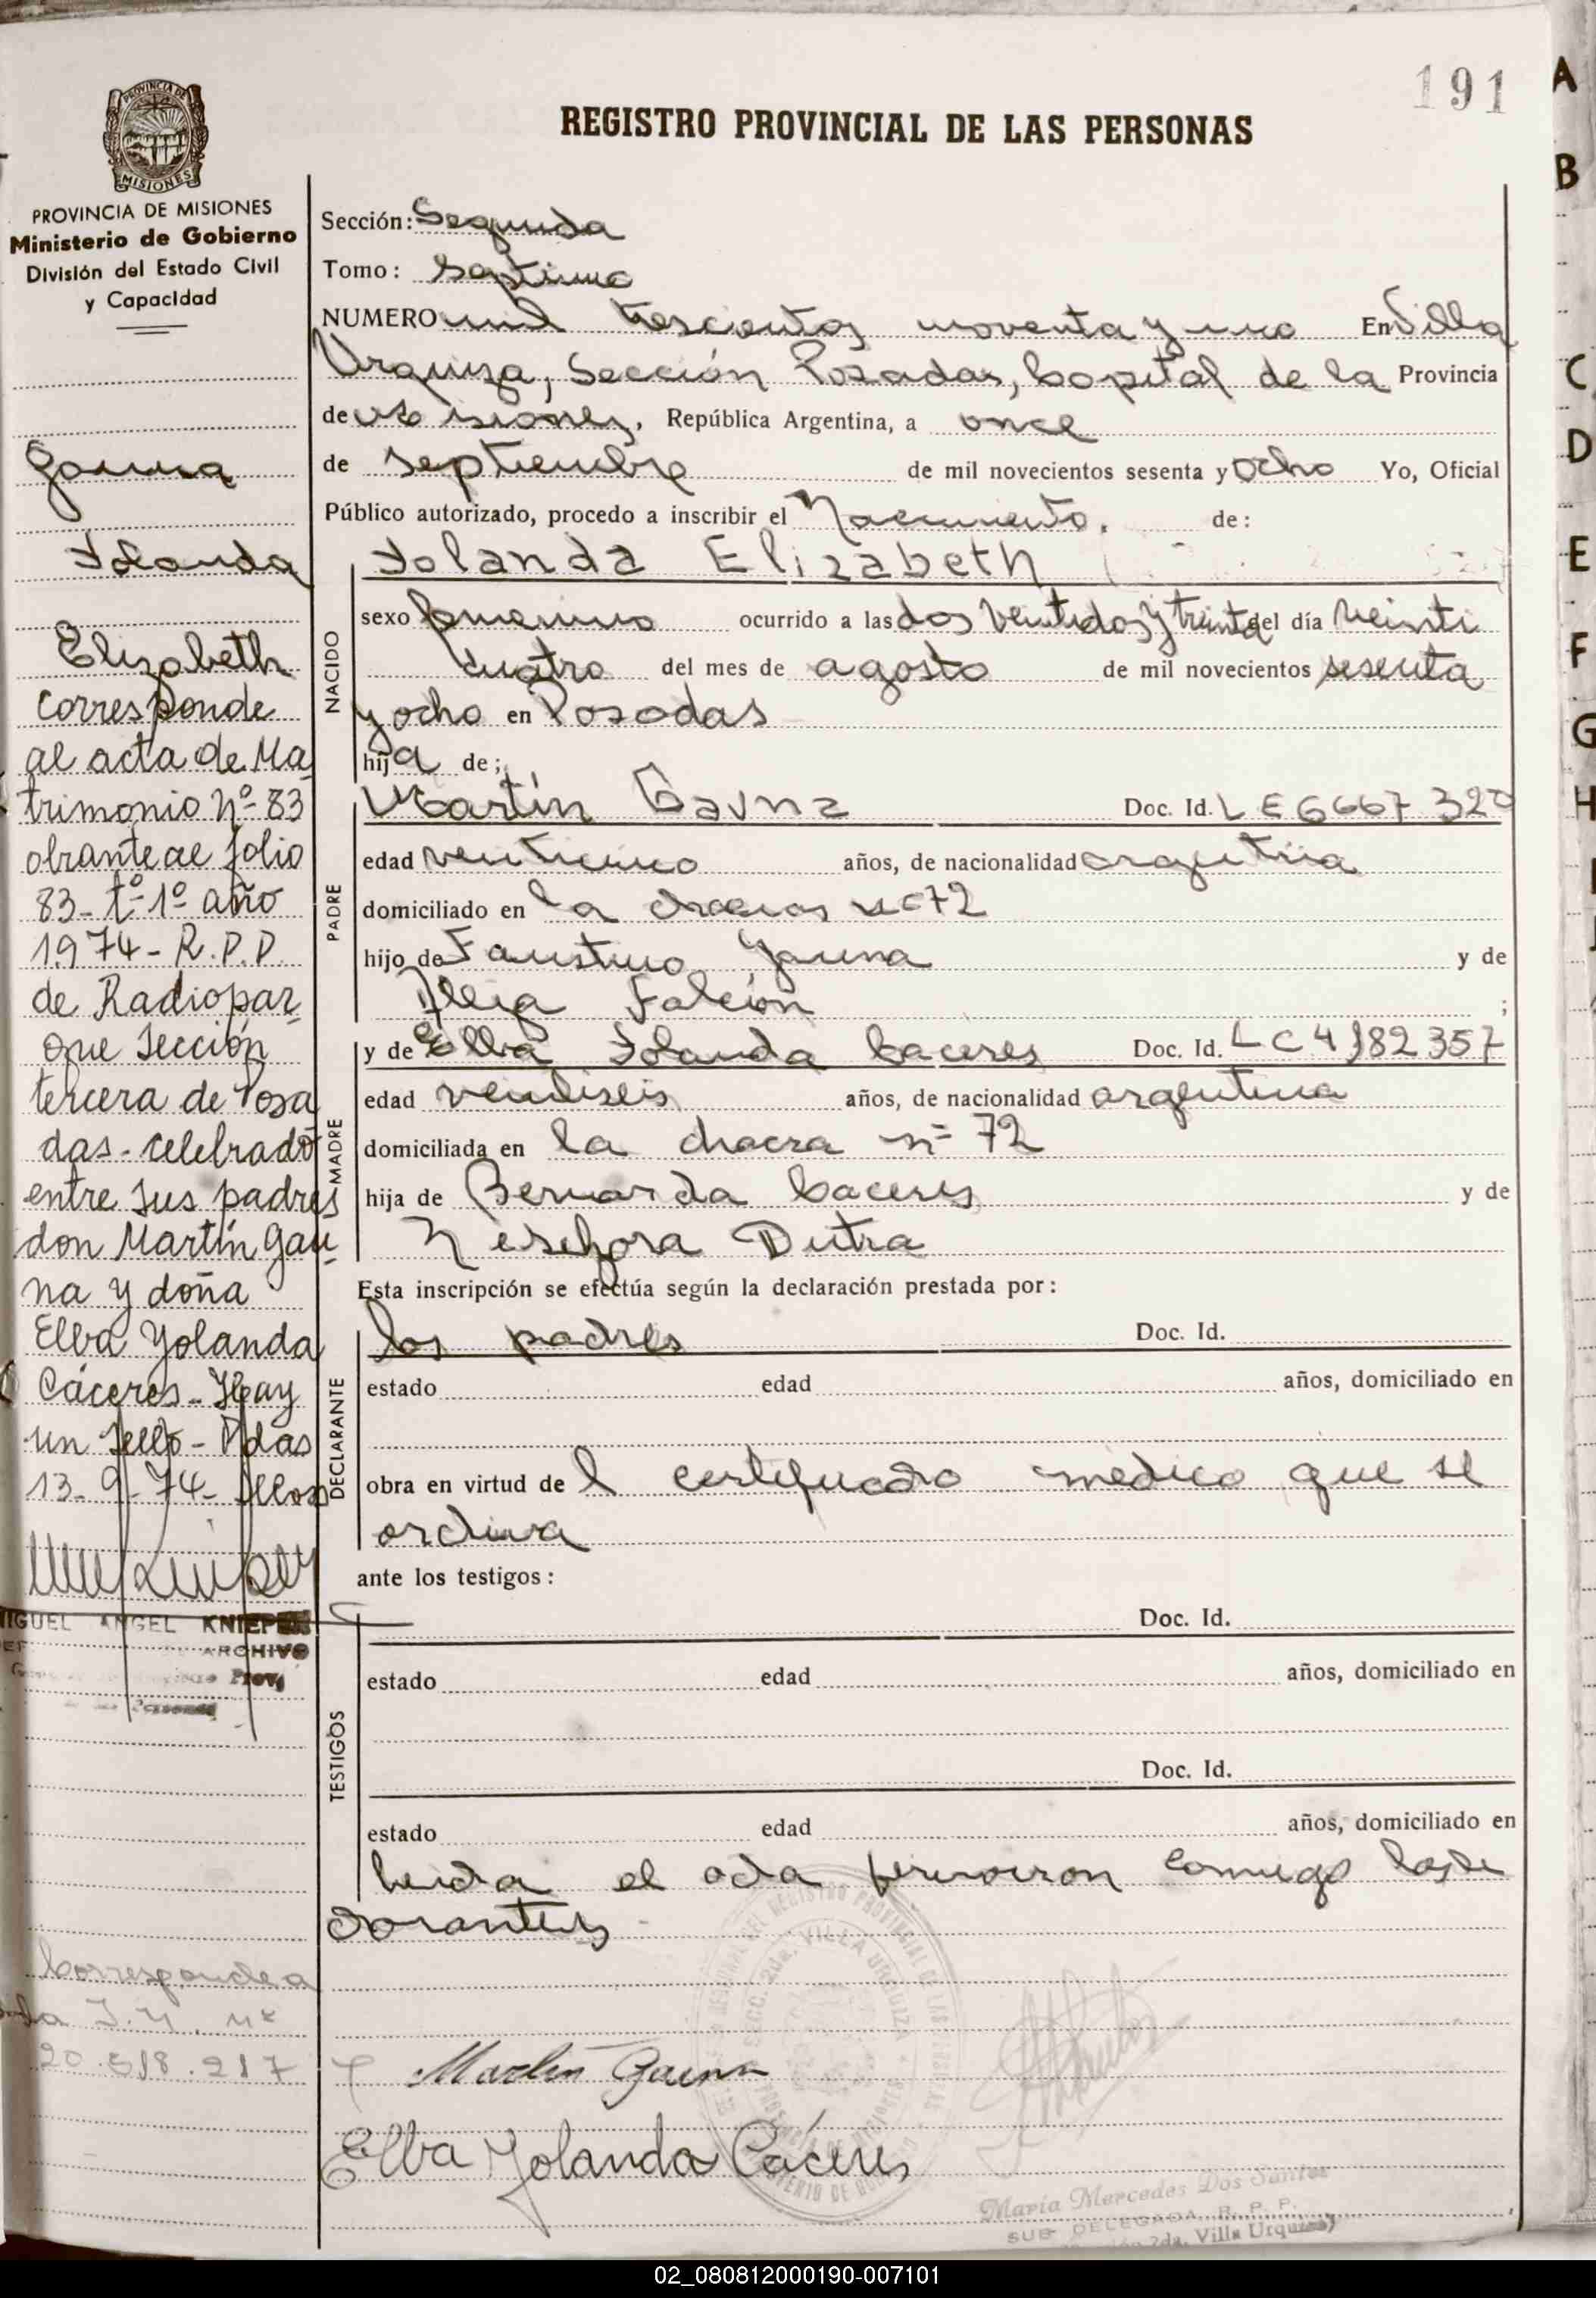 191
REGISTRO PROVINCIAL DE LAS PERSONAS
PROVINCIA DE MISIONES
MISIONES
PROVINCIA DE MISIONES
Ministerio de Gobierno
División del Estado Civil
y Capacidad
Gauna
Yolanda
Elizabeth
corresponde
al acta de Ma
trimonio Nº 83
obrante al folio
83- tº 1º año
1974- R.P.P.
de Radiopar-
que Sección
tercera de Posa
das- celebrado
entre sus padres
don Martín Gau
na y doña
Elba Yolanda
Cáceres- Hay
un sello- Pdas
13-9-74-
MIGUEL ANGEL
ARCHIVO
Prov.
Corresponde a
la I.Y. nº
20.518.217
Sección: Segunda
Tomo: Septimo
NUMERO mil trescientos noventa y uno En Villa
Urquiza, Sección Posadas, Capital de la Provincia
de Misiones, República Argentina, a once
de septiembre de mil novecientos sesenta y ocho Yo, Oficial
Público autorizado, procedo a inscribir el Nacimiento. de:
Yolanda Elizabeth
NACIDO
sexo femenino ocurrido a las dos ventidos y treinta del día veinti
cuatro del mes de agosto de mil novecientos sesenta
y ocho en Posadas
hija de;
PADRE
Martín Gauna Doc. Id. L E 6667 320
edad venticinco años, de nacionalidad argentina
domiciliado en la chacras nº 72
hijo de Faustino Gauna y de
Falcón ;
MADRE
y de Elba Yolanda Caceres Doc. Id. L C 4182357
edad ventiseis años, de nacionalidad argentina
domiciliada en la chacra nº 72
hija de Bernarda Caceres y de
Dutra
Esta inscripción se efectúa según la declaración prestada por:
DECLARANTE
los padres Doc. Id.
estado edad años, domiciliado en
obra en virtud de l certificado médico que se
archiva
ante los testigos:
TESTIGOS
Doc. Id.
estado edad años, domiciliado en
Doc. Id.
estado edad años, domiciliado en
leida el acta firmaron conmigo los de
clarantes
Martin Gauna
Elba Yolanda Cáceres
María Mercedes Dos Santos
SUB DELEGADA R. P. P.
2da. Villa Urquiza
A
B
C
D
E
F
G
H
I
02_080812000190-007101